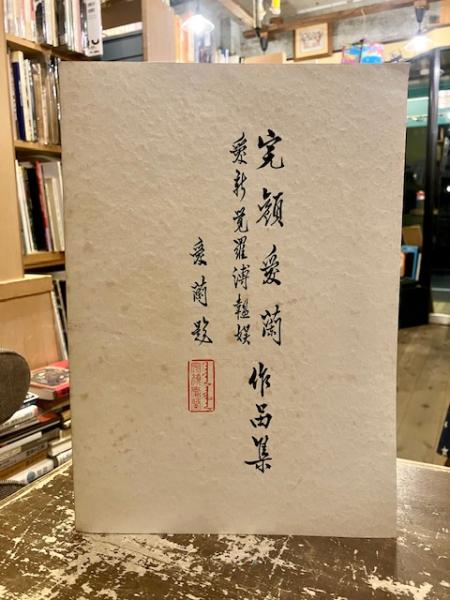 完顏愛蘭
愛新覺羅溥韞娛
作品集
愛蘭題